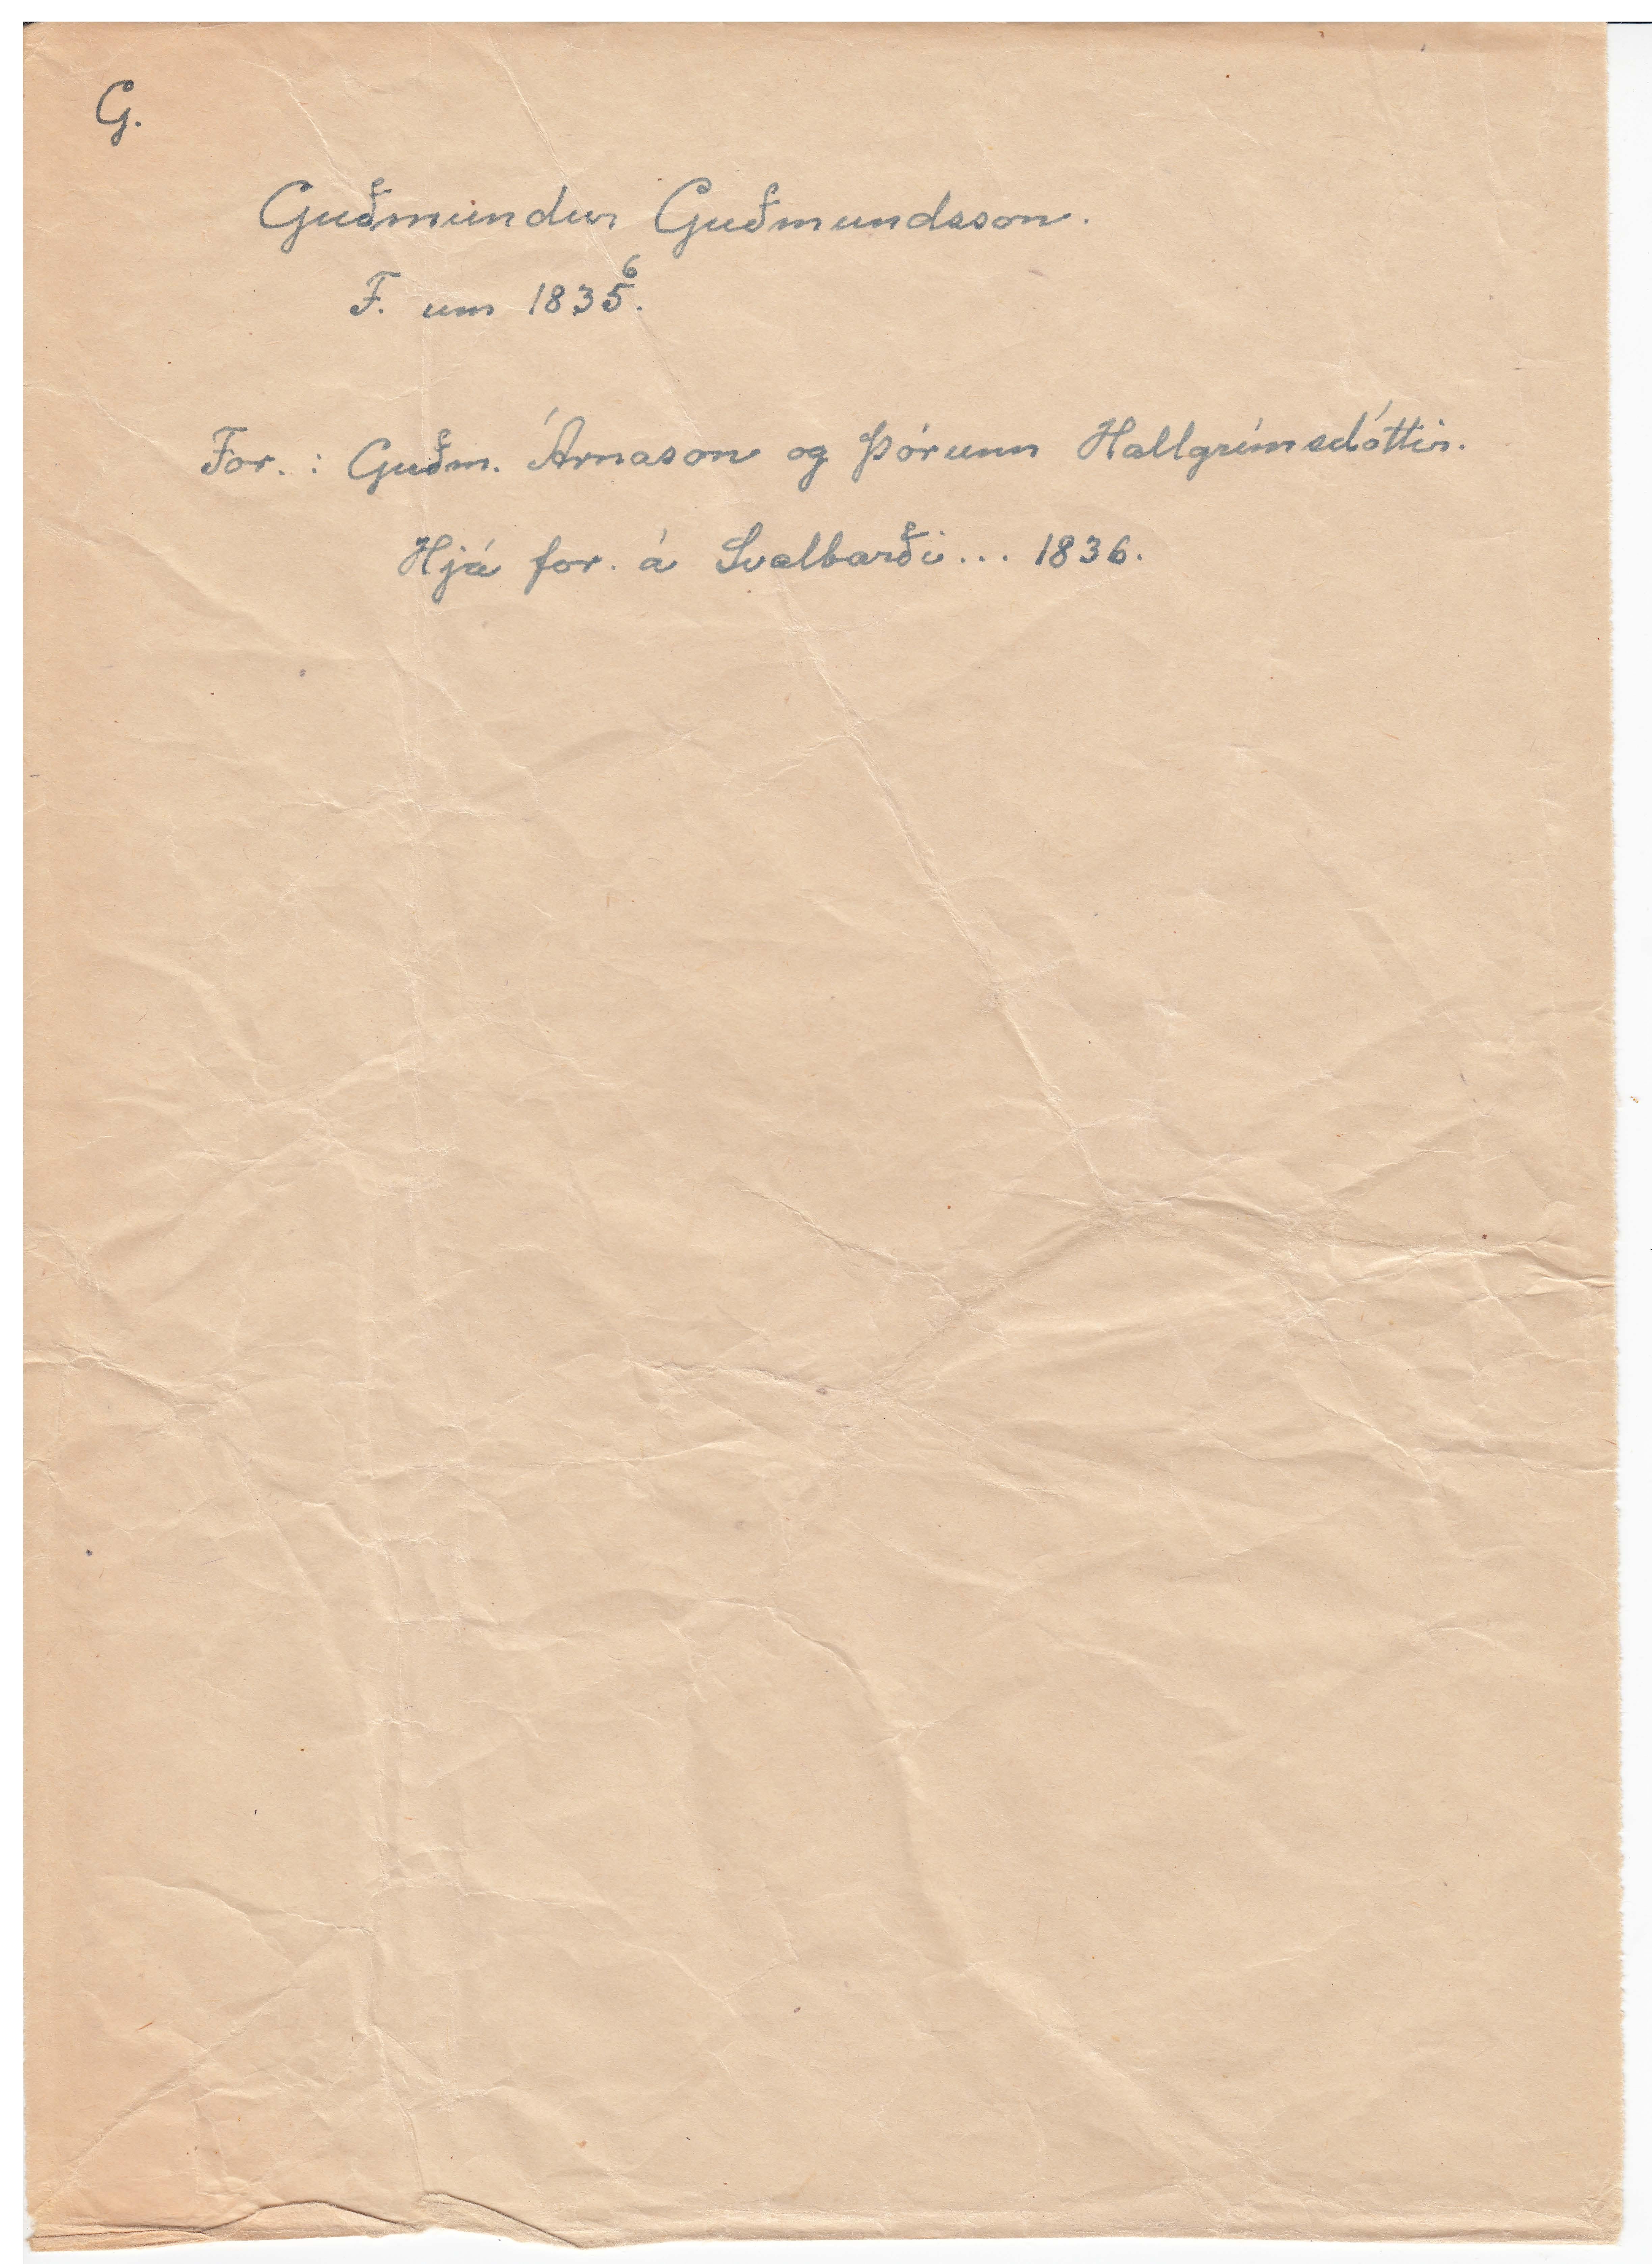 G.
Guðmundur Guðmundsson.
6
F. um 1835.
For. : Guðm. Árnason og Þórunn Hallgrímsdóttir.
Hjá for. á Svalbarði... 1836.